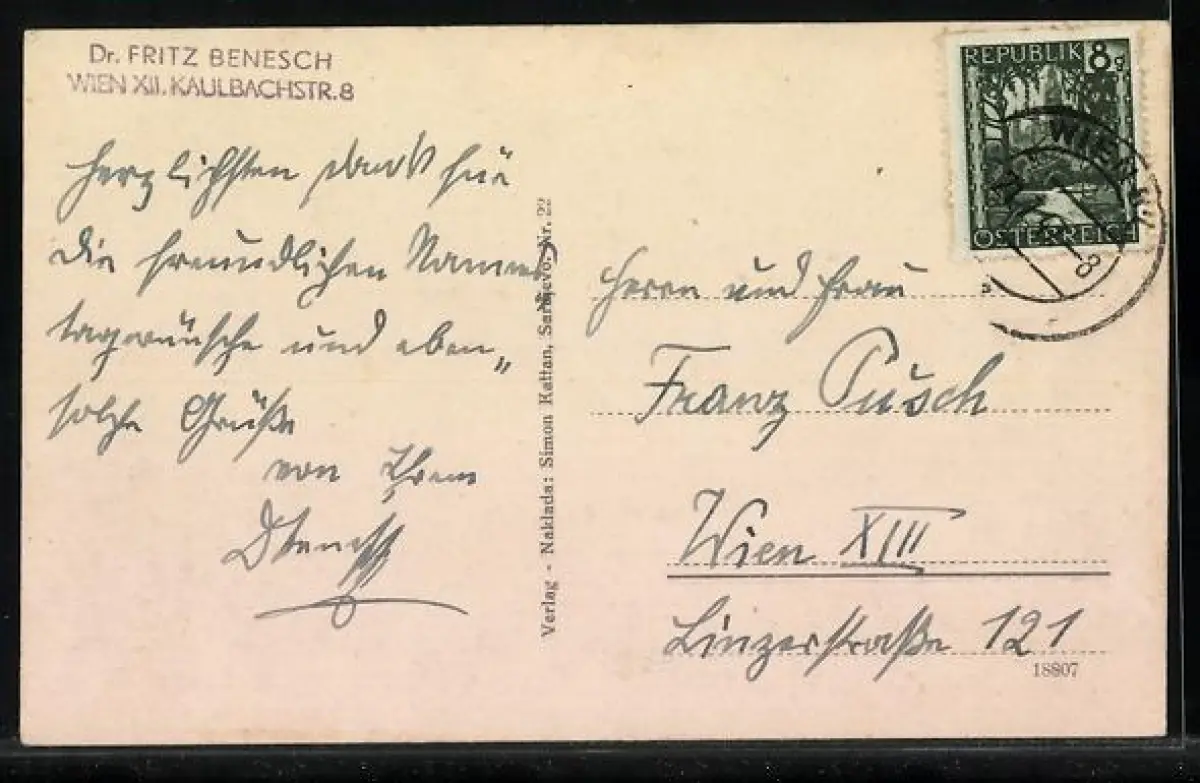 Dr. FRITZ BENESCH
WIEN XII. KAULBACHSTR. 8
Herzlichsten Dank für
die freundlichen Namens
tagwünsche und eben„
solche Grüße
von Ihrem
DBenesch
Verlag - Naklada: Simon Kattan, Sarajevo. Nr. 22
REPUBLIK 8g
ÖSTERREICH
WIEN
Herrn und Frau
Franz Pusch
Wien XIII
Linzerstraße 121
18807